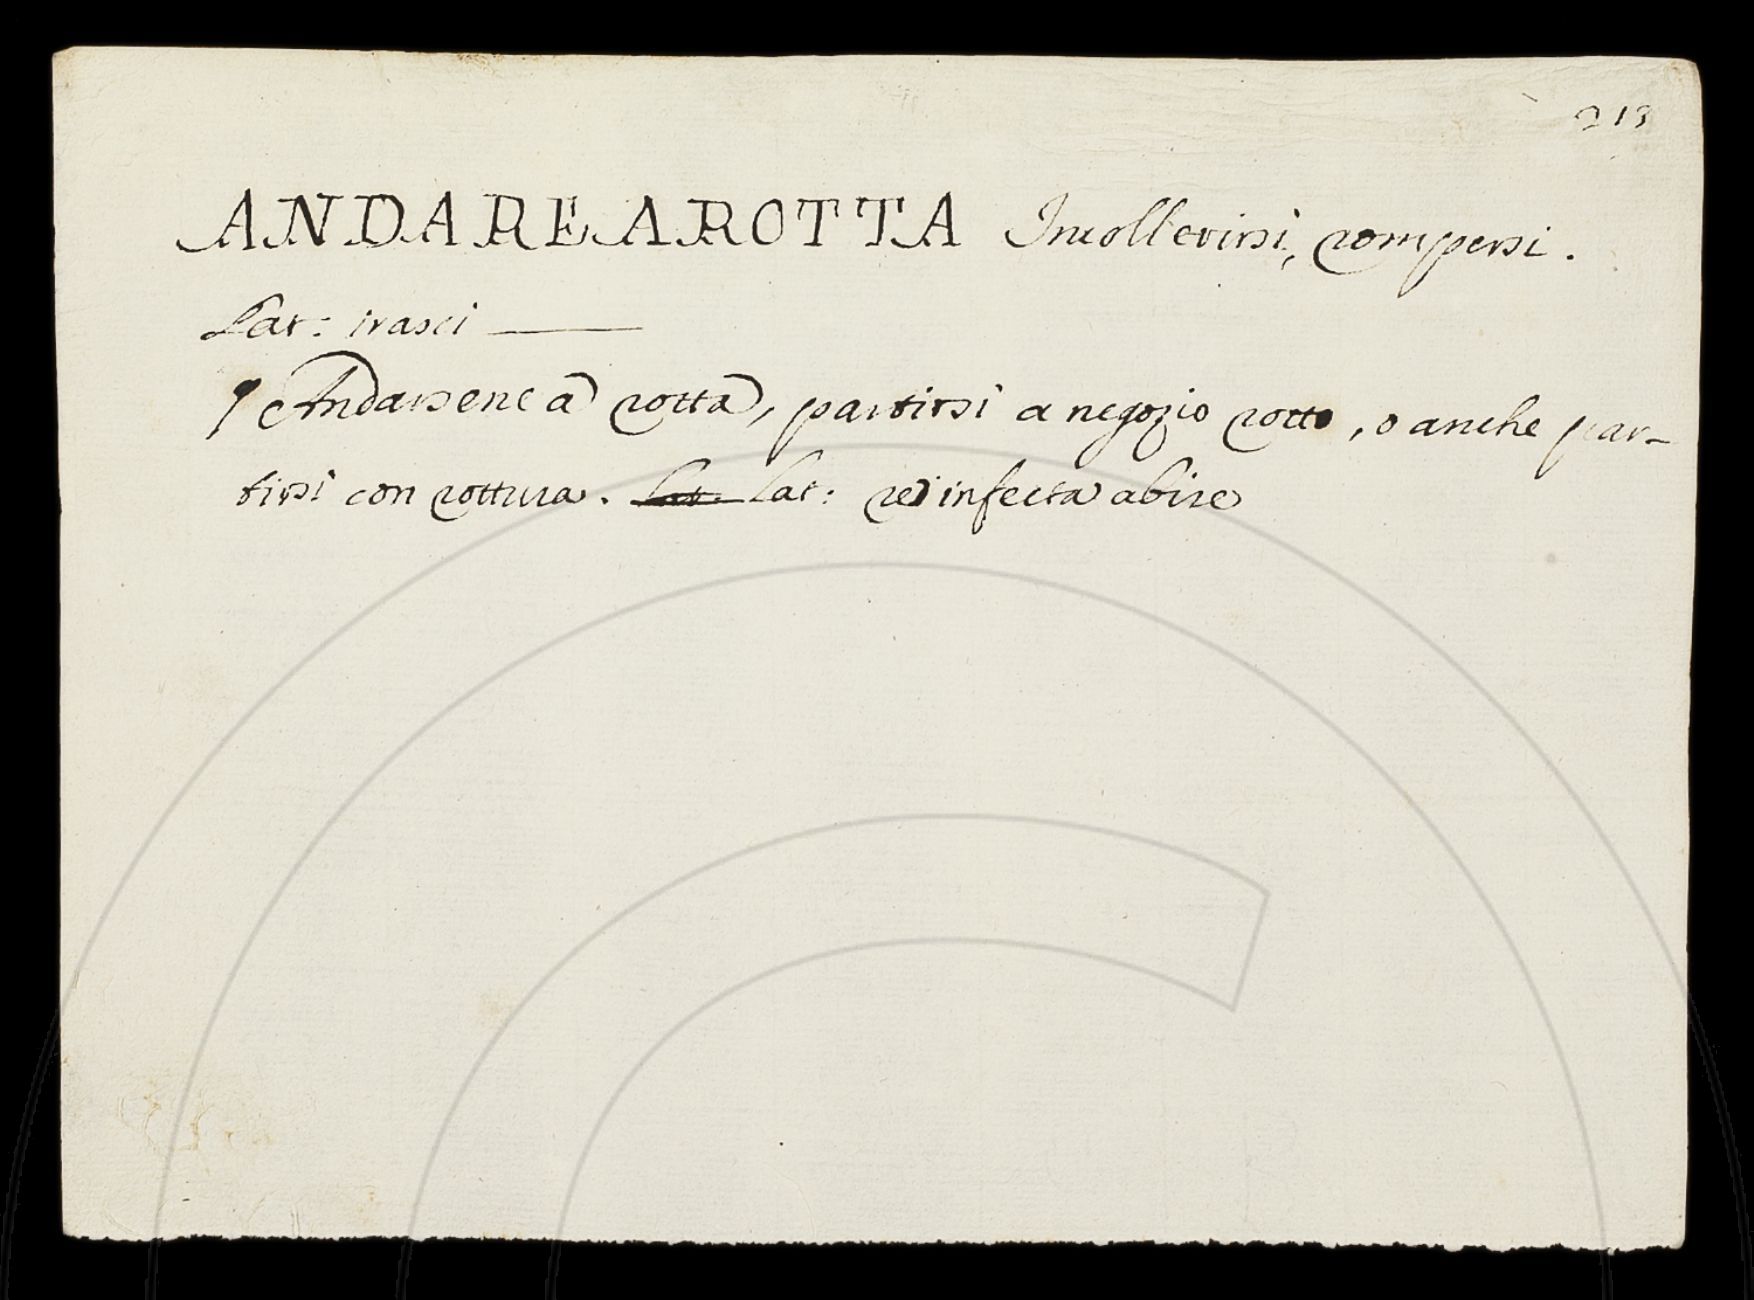 213
ANDARE A ROTTA Incollerirsi, rompersi.
Lat: irasci
¶ Andarsene a rotta, partirsi a negozio rotto, o anche par-
tirsi con rottura. Lat. Lat: re infecta abire